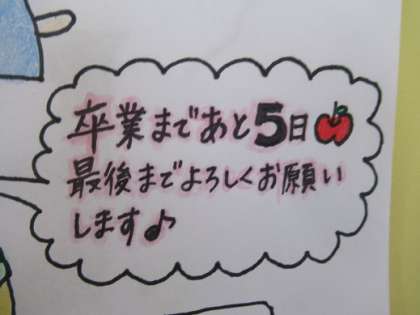 卒業まであと5日
最後までよろしくお願い
します♪